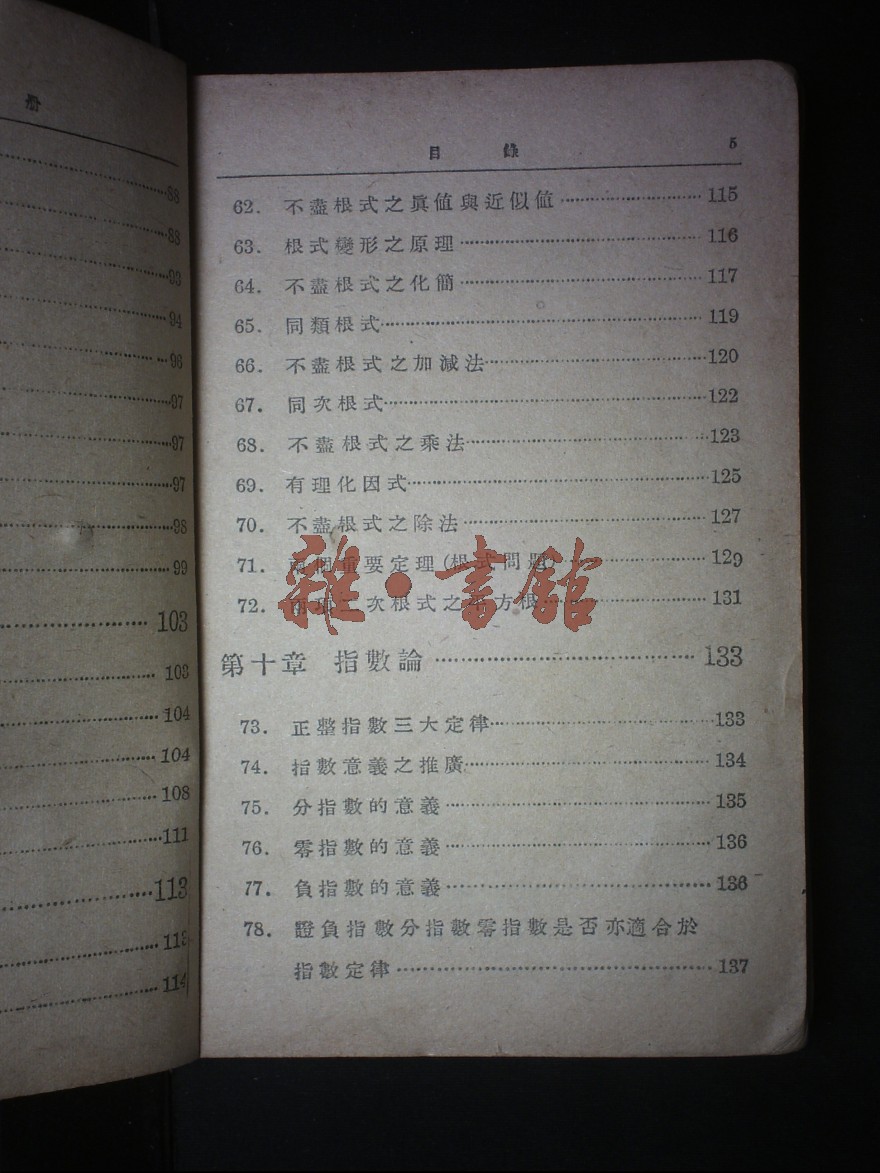 册
88
88
93
94
96
97
97
97
98
99
103
103
104
104
108
111
113
113
114
目 錄 5
62. 不盡根式之眞値與近似値 115
63. 根式變形之原理 116
64. 不盡根式之化簡 117
65. 同類根式 119
66. 不盡根式之加減法 120
67. 同次根式 122
68. 不盡根式之乘法 123
69. 有理化因式 125
70. 不盡根式之除法 127
71. 兩個重要定理(根式問題) 129
72. 兩項二次根式之平方根 131
雜·書館
第十章 指數論 133
73. 正整指數三大定律 133
74. 指數意義之推廣 134
75. 分指數的意義 135
76. 零指數的意義 136
77. 負指數的意義 136
78. 證負指數分指數零指數是否亦適合於
指數定律 137